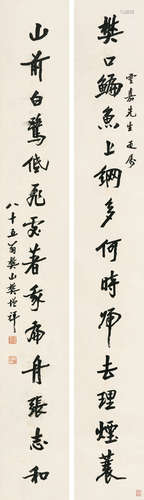 樊口鯿魚上網多何時歸去理煙蓑
雲嘉先生正
山前白鷺低飛處著我扁舟張志和
八十五翁樊山樊增祥